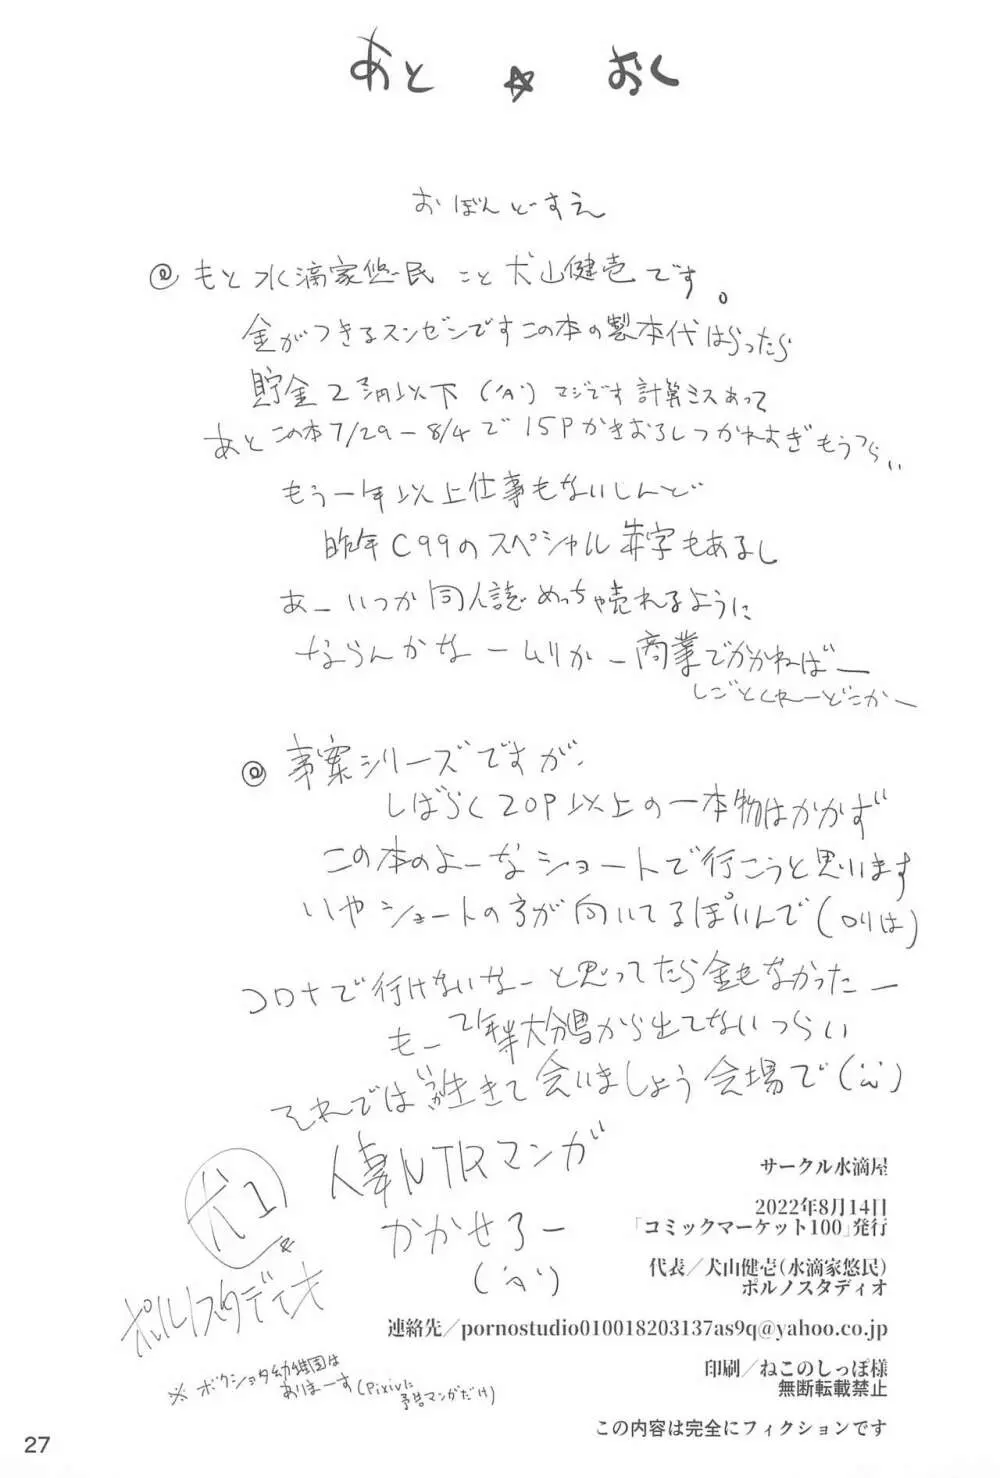 あと☆おく
おぼんどーすえ
@ もと水滴家悠民こと犬山健壱です。
金がつきるスンゼンですこの本の製本代はらったら
貯金2万円以下 マジです計算ミスあって
あとこの本7/29-8/4で15Pかきおろしつかれすぎもうつらい
もう一年以上仕事もないしんど
昨年C99のスペシャル赤字もあるし
あーいつか同人誌めっちゃ売れるように
ならんかなームリかー商業でかかねばー
しごとくれーどこかー
@ 事案シリーズですが、
しばらく20P以上の一本物はかかず
この本のよーなショートで行こうと思います
いやショートの方が向いてるぽいんで
コロナで行けないなーと思ってたら金もなかったー
もー2年半大分県から出てないつらい
それでは生きて会いましょう会場で
人妻NTRマンガ
かかせろー
犬1
ポルノスタディオ
※ボクショタ幼稚園は
ありまーす(Pixivに
予告マンガだけ)
サークル水滴屋
2022年8月14日
「コミックマーケット100」発行
代表／犬山健壱(水滴家悠民)
ポルノスタディオ
連絡先／pornostudio010018203137as9q@yahoo.co.jp
印刷／ねこのしっぽ様
無断転載禁止
この内容は完全にフィクションです
27